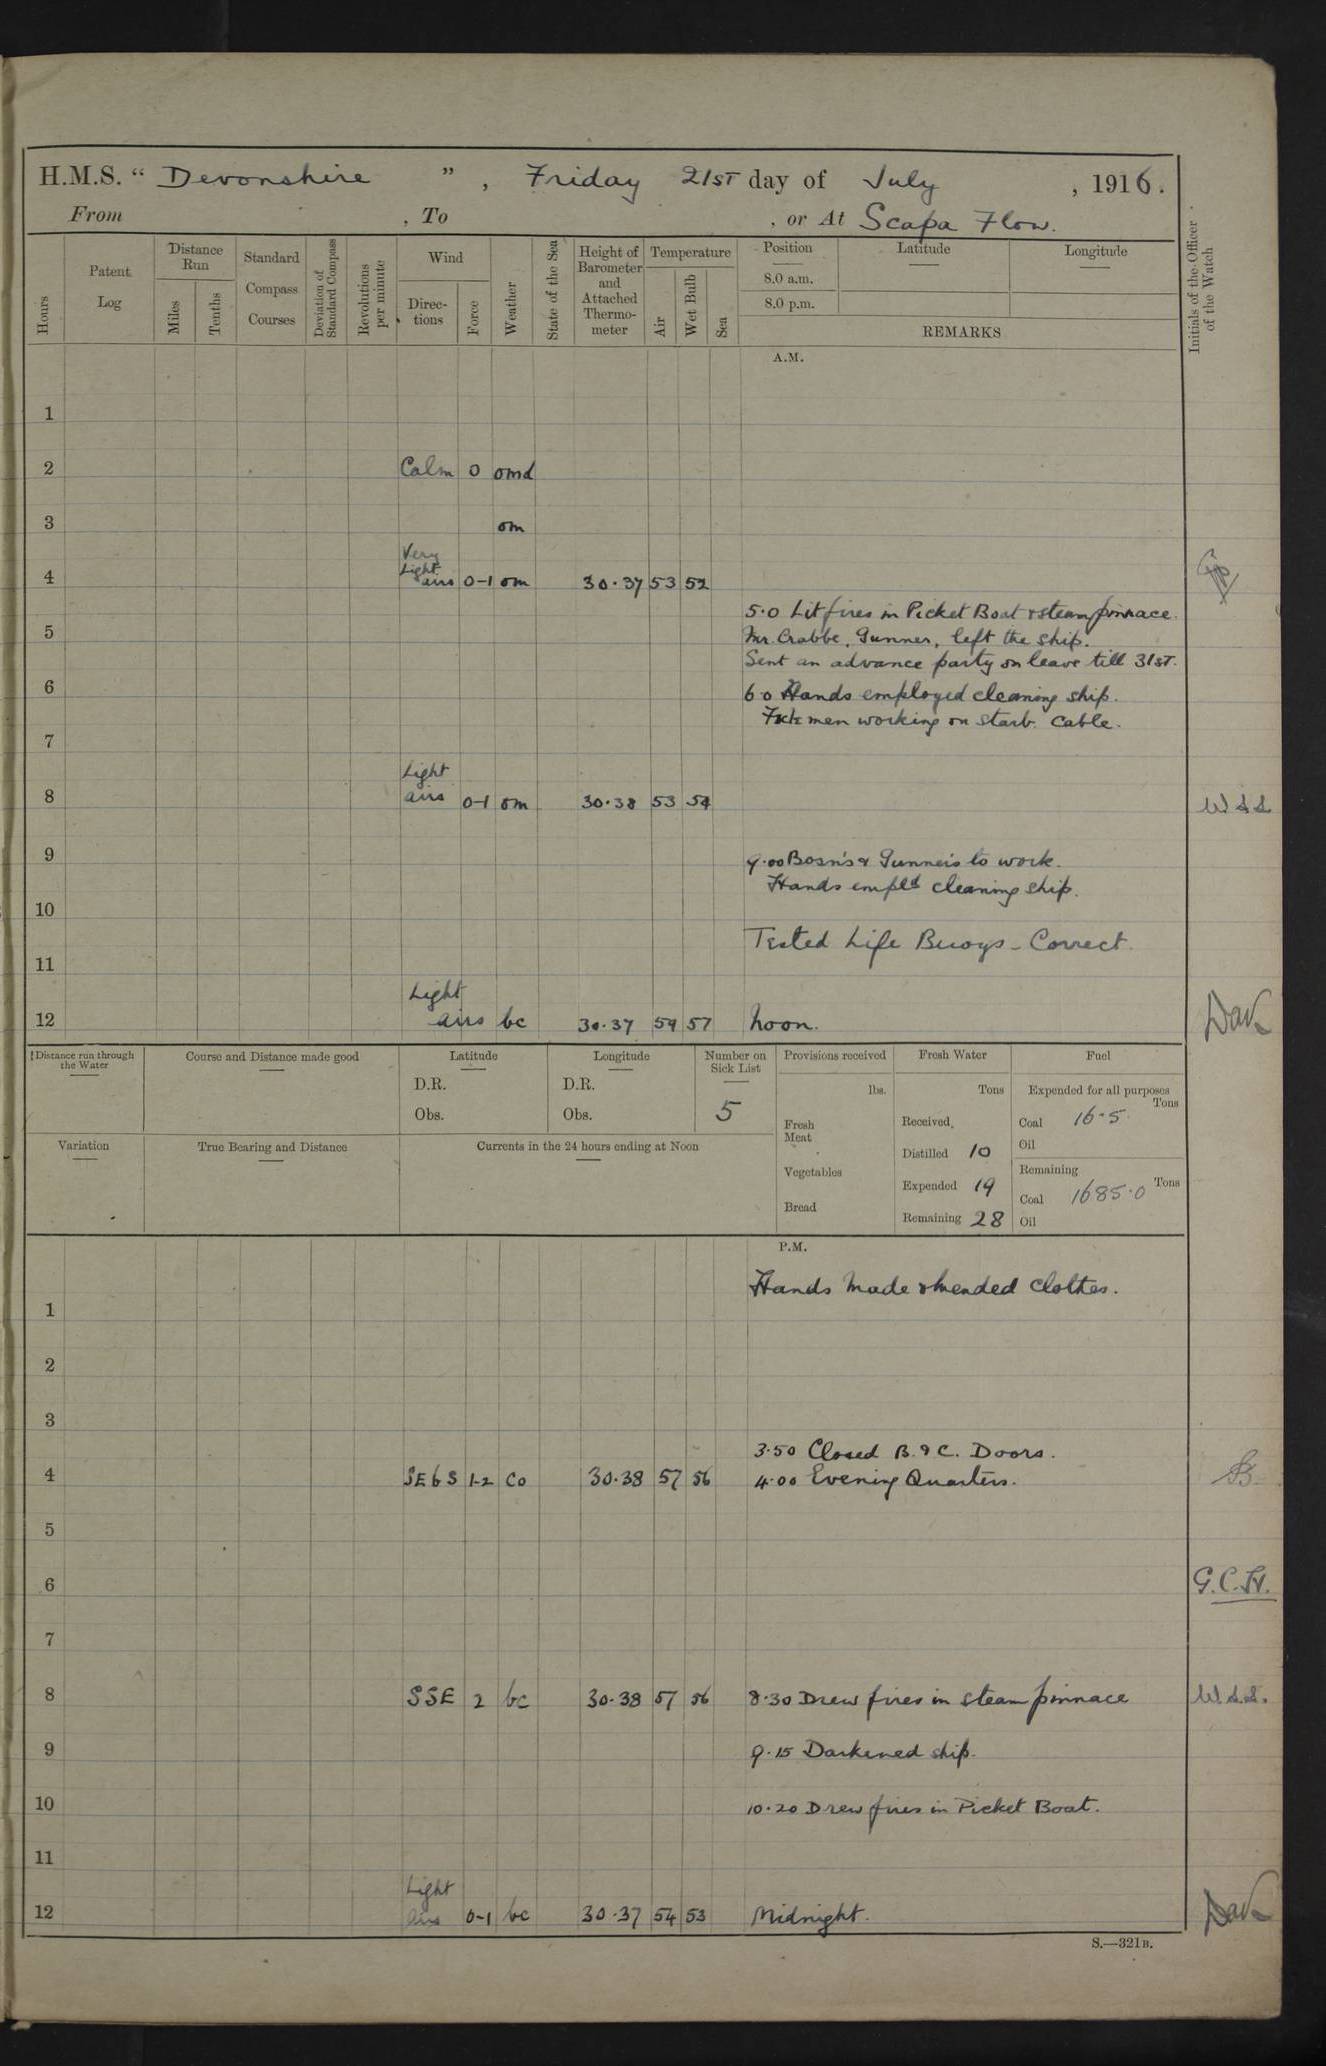 H.M.S. “ Devonshire ” , Friday 21ST day of July , 1916.
From , To , or At Scapa Flow.
Hours
Patent Log
Distance Run
Miles
Tenths
Standard Compass Courses
Deviation of Standard Compass
Revolutions per minute
Wind
Directions
Force
Weather
State of the Sea
Height of Barometer and Attached Thermometer
Temperature
Air
Wet Bulb
Sea
Position
8.0 a.m.
8.0 p.m.
Latitude
Longitude
REMARKS
Initials of the Officer of the Watch
A.M.
1
2 Calm 0 omd
3 om
4 Very Light airs 0-1 om 30.37 53 52
5.0 Lit fires in Picket Boat & steam pinnace.
5 Mr. Crabbe, Gunner, left the ship.
Sent an advance party on leave till 31ST.
6 6.0 Hands employed cleaning ship.
men working on Starb. Cable.
7
8 Light airs 0-1 om 30.38 53 54 W.S.S.
9 9.00 Bosn's & Gunner's to work.
Hands empld cleaning ship.
10
Tested Life Buoys - Correct.
11
12 Light airs bc 30.37 59 57 Noon.
Distance run through the Water
Course and Distance made good
Latitude
D.R.
Obs.
Longitude
D.R.
Obs.
Number on Sick List
5
Provisions received
lbs.
Fresh Meat
Vegetables
Bread
Fresh Water
Tons
Received,
Distilled 10
Expended 19
Remaining 28
Fuel
Expended for all purposes
Tons
Coal 16.5
Oil
Remaining
Tons
Coal 1685.0
Oil
Variation
True Bearing and Distance
Currents in the 24 hours ending at Noon
P.M.
Hands made & mended clothes.
1
2
3
3.50 Closed B. & C. Doors.
4 SE b S 1-2 co 30.38 57 56 4.00 Evening Quarters.
5
6 G.C.H.
7
8 SSE 2 bc 30.38 57 56 8.30 Drew fires in steam pinnace W.S.S.
9 9.15 Darkened ship.
10 10.20 Drew fires in Picket Boat.
11
12 Light airs 0-1 bc 30.37 54 53 Midnight.
S.—321B.